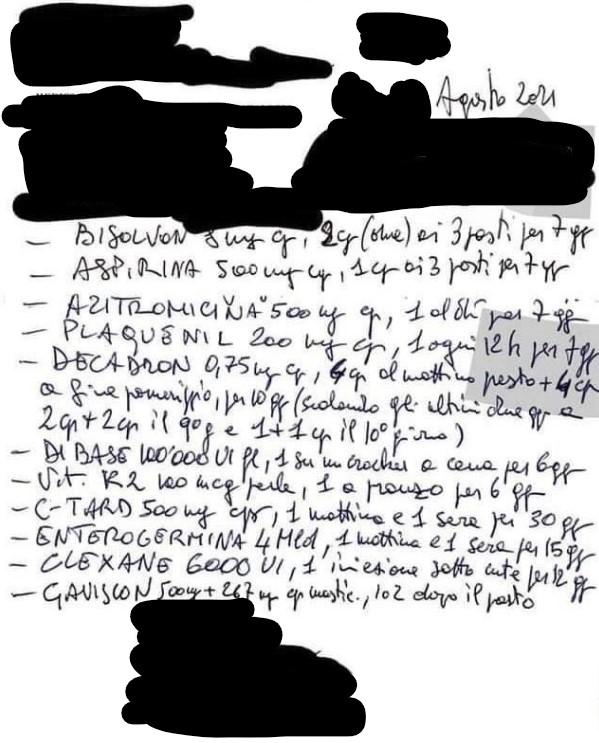 Agosto 2021
- BISOLVON 8 mg cp, 2 cp (due) ai 3 pasti per 7 gg
- ASPIRINA 500 mg cp, 1 cp ai 3 pasti per 7 gg
- AZITROMICINA 500 mg cp, 1 al dì per 7 gg
- PLAQUENIL 200 mg cp, 1 ogni 12 h per 7 gg
- DECADRON 0,75 mg cp, 4 cp al mattino presto + 4 cp
a fine pomeriggio, per 10 gg (scalando gli ultimi due gg a
2 cp + 2 cp il 9° g e 1 + 1 cp il 10° giorno)
- DIBASE 100'000 UI fl, 1 su un cracker a cena per 6 gg
- Vit. K2 100 mcg perle, 1 a pranzo per 6 gg
- C-TARD 500 mg cps, 1 mattina e 1 sera per 30 gg
- ENTEROGERMINA 4 Mld, 1 mattina e 1 sera per 15 gg
- CLEXANE 6000 UI, 1 iniezione sotto cute per 12 gg
- GAVISCON 500 mg + 267 mg cp mastic., 1 o 2 dopo il pasto